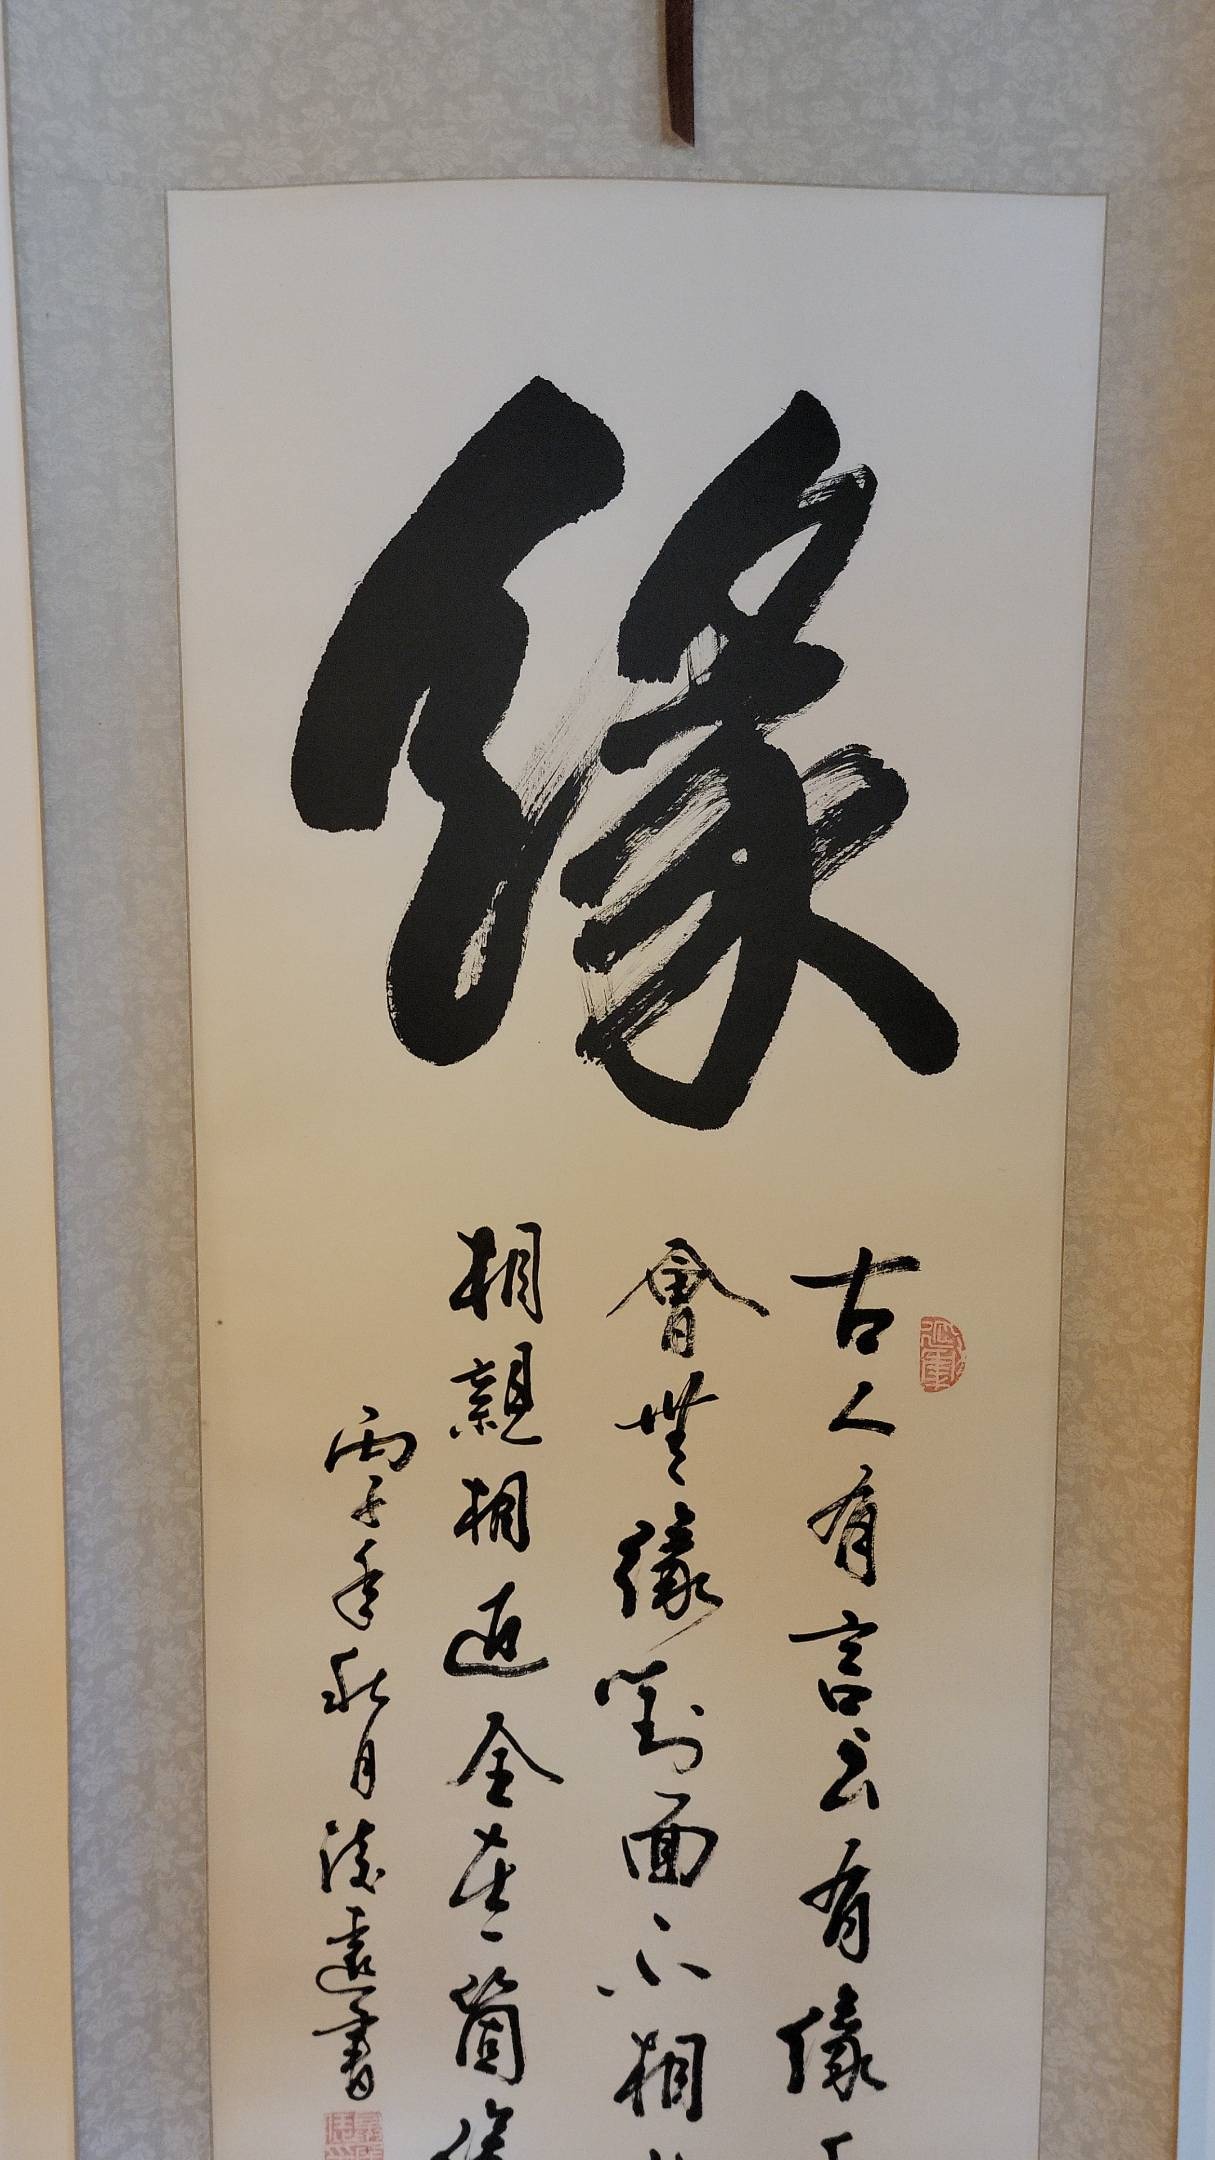 緣
古人有言云有緣千
會無緣對面不相
相親相近全在一箇緣
丙子年秋月
遠書